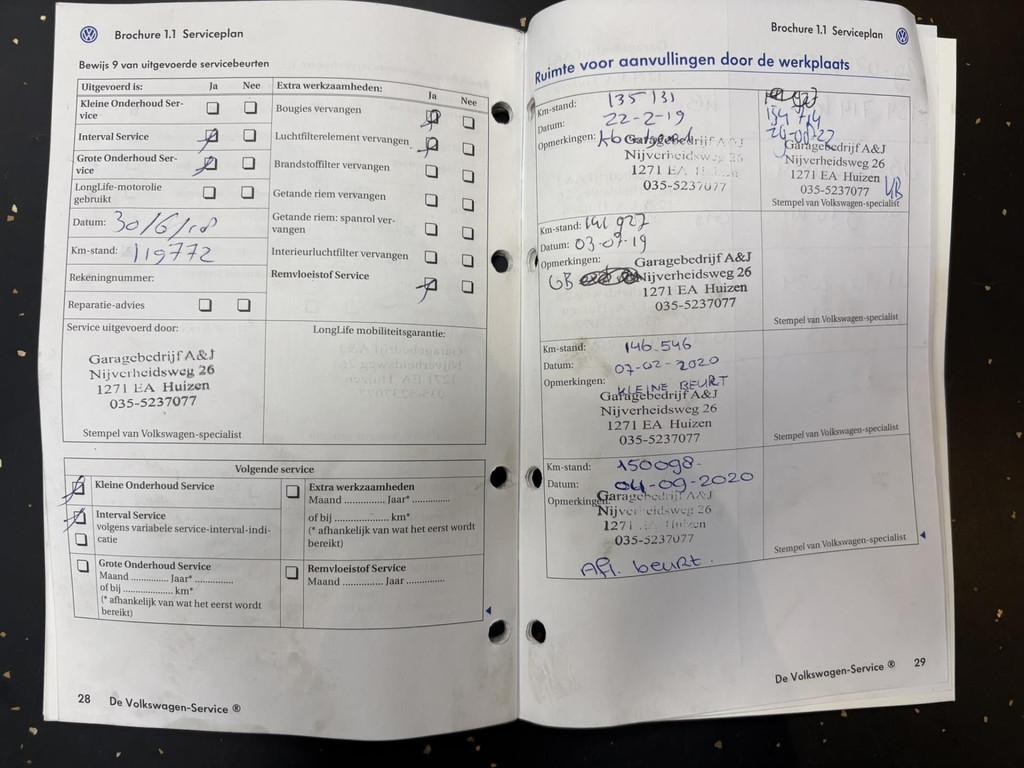 Brochure 1.1 Serviceplan
Bewijs 9 van uitgevoerde servicebeurten
Uitgevoerd is: Ja Nee
Kleine Onderhoud Ser-
vice
Interval Service
Grote Onderhoud Ser-
vice
LongLife-motorolie
gebruikt
Datum: 30/6/18
Km-stand: 119772
Rekeningnummer:
Reparatie-advies
Extra werkzaamheden: Ja Nee
Bougies vervangen
Luchtfilterelement vervangen
Brandstoffilter vervangen
Getande riem vervangen
Getande riem: spanrol ver-
vangen
Interieurluchtfilter vervangen
Remvloeistof Service
Service uitgevoerd door:
Garagebedrijf A&J
Nijverheidsweg 26
1271 EA Huizen
035-5237077
Stempel van Volkswagen-specialist
LongLife mobiliteitsgarantie:
Volgende service
Kleine Onderhoud Service
Interval Service
volgens variabele service-interval-indi-
catie
Grote Onderhoud Service
Maand .............. Jaar* ..............
of bij .................... km*
(* afhankelijk van wat het eerst wordt
bereikt)
Extra werkzaamheden
Maand ............... Jaar* ..............
of bij .................... km*
(* afhankelijk van wat het eerst wordt
bereikt)
Remvloeistof Service
Maand ............... Jaar ..............
28 De Volkswagen-Service ®
Brochure 1.1 Serviceplan
Ruimte voor aanvullingen door de werkplaats
Km-stand: 135131
Datum: 22-2-19
Opmerkingen:
Garagebedrijf A&J
Nijverheidsweg 26
1271 EA
035-5237077
Garagebedrijf A&J
Nijverheidsweg 26
1271 EA Huizen
035-5237077
Stempel van Volkswagen-specialist
Km-stand: 141 927
Datum: 03-07-19
Opmerkingen:
GB
Garagebedrijf A&J
Nijverheidsweg 26
1271 EA Huizen
035-5237077
Stempel van Volkswagen-specialist
Km-stand: 146.546
Datum: 07-02-2020
Opmerkingen: KLEINE BEURT
Garagebedrijf A&J
Nijverheidsweg 26
1271 EA Huizen
035-5237077
Stempel van Volkswagen-specialist
Km-stand: 150098.
Datum: 04-09-2020
Opmerkingen:
Garagebedrijf A&J
Nijverheidsweg 26
1271 EA Huizen
035-5237077
Afl. beurt.
Stempel van Volkswagen-specialist
De Volkswagen-Service ® 29